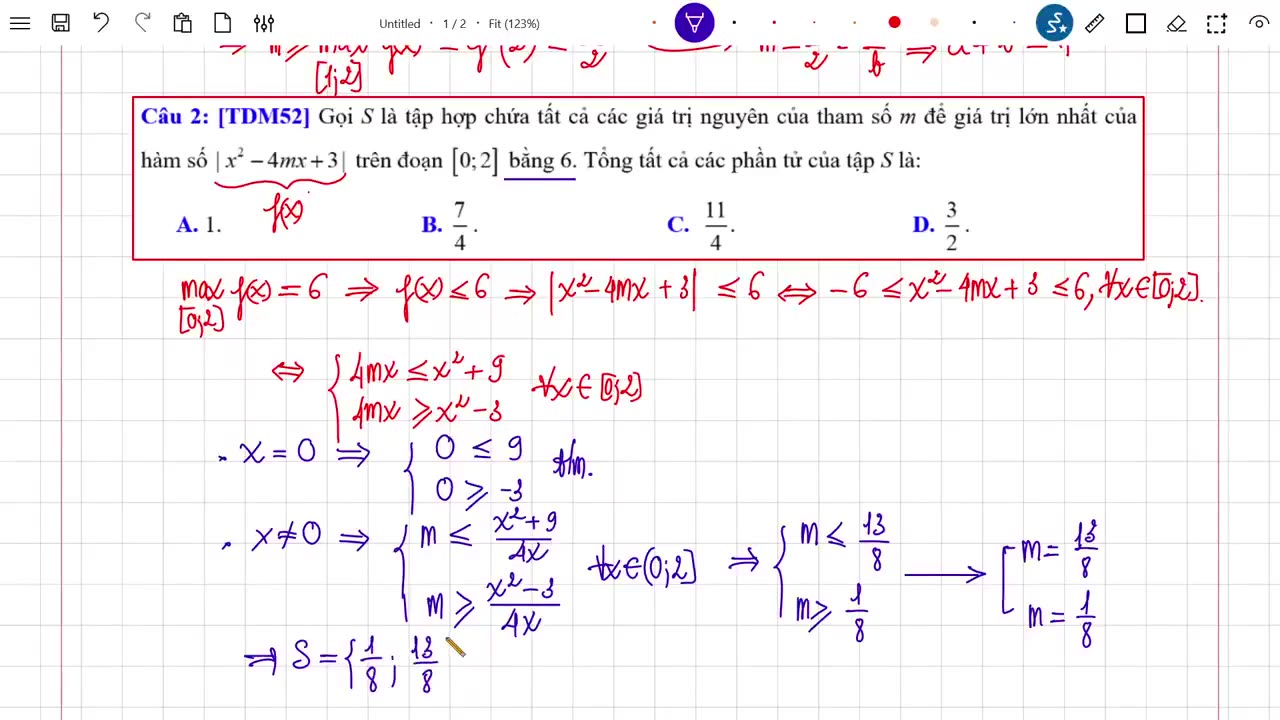 Untitled • 1 / 2 • Fit (123%)
[1;2]
Câu 2: [TDM52] Gọi S là tập hợp chứa tất cả các giá trị nguyên của tham số m để giá trị lớn nhất của
hàm số | x² − 4mx + 3 | trên đoạn [0; 2] bằng 6. Tổng tất cả các phần tử của tập S là:
f(x)
A. 1. B. 7/4. C. 11/4. D. 3/2.
max f(x) = 6 ⇒ f(x) ≤ 6 ⇒ |x² − 4mx + 3| ≤ 6 ⇔ −6 ≤ x² − 4mx + 3 ≤ 6, ∀x ∈ [0;2].
[0;2]
⇔ { 4mx ≤ x² + 9
4mx ≥ x² − 3 ∀x ∈ [0;2]
. x = 0 ⇒ { 0 ≤ 9
0 ≥ −3 t/m.
. x ≠ 0 ⇒ { m ≤ (x² + 9)/4x ∀x ∈ (0;2] ⇒ { m ≤ 13/8 → [ m = 13/8
m ≥ (x² − 3)/4x m ≥ 1/8 m = 1/8
⇒ S = { 1/8 ; 13/8